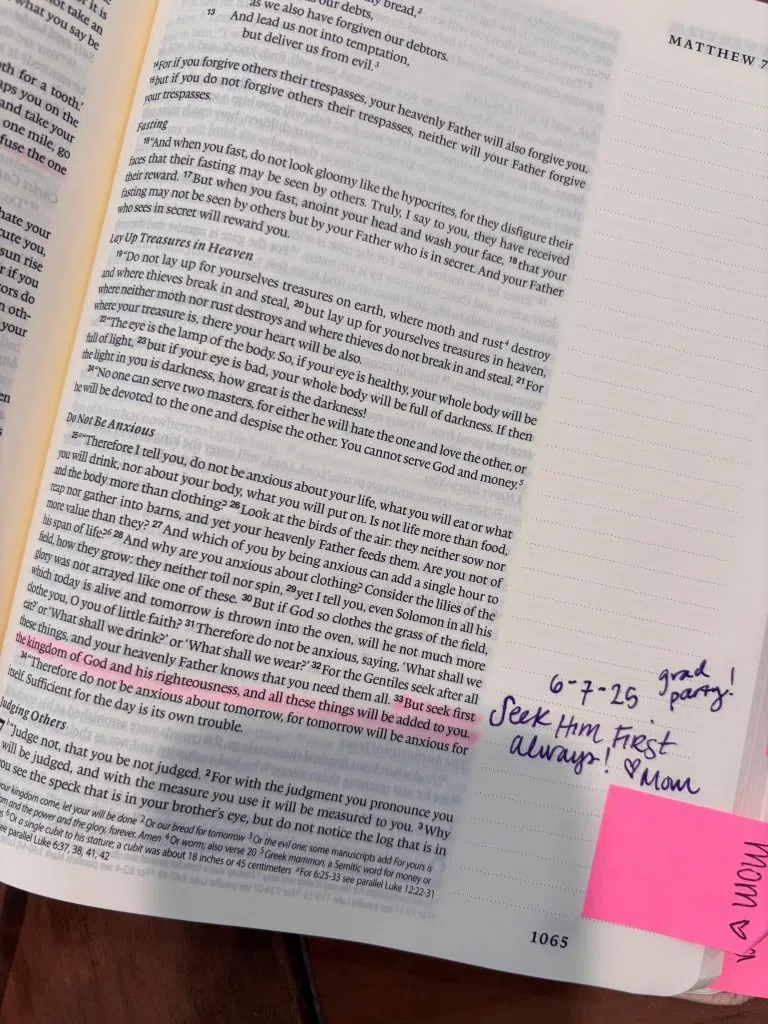 not take an
what you say be
oth for a tooth.'
aps you on the
and take your
one mile, go
fuse the one
hate your
cute you,
sun rise
r if you
tors do
n oth-
your
en
MATTHEW 7
our debts,
as we also have forgiven our debtors.
13 And lead us not into temptation,
but deliver us from evil.3
14For if you forgive others their trespasses, your heavenly Father will also forgive you,
15but if you do not forgive others their trespasses, neither will your Father forgive
your trespasses.
Fasting
16"And when you fast, do not look gloomy like the hypocrites, for they disfigure their
faces that their fasting may be seen by others. Truly, I say to you, they have received
their reward. 17But when you fast, anoint your head and wash your face, 18that your
fasting may not be seen by others but by your Father who is in secret. And your Father
who sees in secret will reward you.
Lay Up Treasures in Heaven
19"Do not lay up for yourselves treasures on earth, where moth and rust4 destroy
and where thieves break in and steal, 20but lay up for yourselves treasures in heaven,
where neither moth nor rust destroys and where thieves do not break in and steal. 21For
where your treasure is, there your heart will be also.
22"The eye is the lamp of the body. So, if your eye is healthy, your whole body will be
full of light, 23but if your eye is bad, your whole body will be full of darkness. If then
the light in you is darkness, how great is the darkness!
24"No one can serve two masters, for either he will hate the one and love the other, or
he will be devoted to the one and despise the other. You cannot serve God and money.5
Do Not Be Anxious
25a"Therefore I tell you, do not be anxious about your life, what you will eat or what
you will drink, nor about your body, what you will put on. Is not life more than food,
and the body more than clothing? 26Look at the birds of the air: they neither sow nor
reap nor gather into barns, and yet your heavenly Father feeds them. Are you not of
more value than they? 27And which of you by being anxious can add a single hour to
his span of life?6 28And why are you anxious about clothing? Consider the lilies of the
field, how they grow: they neither toil nor spin, 29yet I tell you, even Solomon in all his
glory was not arrayed like one of these. 30But if God so clothes the grass of the field,
which today is alive and tomorrow is thrown into the oven, will he not much more
clothe you, O you of little faith? 31Therefore do not be anxious, saying, 'What shall we
eat?' or 'What shall we drink?' or 'What shall we wear?' 32For the Gentiles seek after all
these things, and your heavenly Father knows that you need them all. 33But seek first
the kingdom of God and his righteousness, and all these things will be added to you.
34"Therefore do not be anxious about tomorrow, for tomorrow will be anxious for
itself. Sufficient for the day is its own trouble.
Judging Others
7 "Judge not, that you be not judged. 2For with the judgment you pronounce you
will be judged, and with the measure you use it will be measured to you. 3Why
you see the speck that is in your brother's eye, but do not notice the log that is in
your kingdom come, let your will be done 2 Or our bread for tomorrow 3 Or the evil one; some manuscripts add For yours is
om and the power and the glory, forever. Amen 4 Or worm; also verse 20 5 Greek mammon, a Semitic word for money or
6 Or a single cubit to his stature; a cubit was about 18 inches or 45 centimeters a For 6:25-33 see parallel Luke 12:22-31
see parallel Luke 6:37, 38, 41, 42
6-7-25 grad
party!
Seek Him First
always! ♡ Mom
1065
♡ Mom